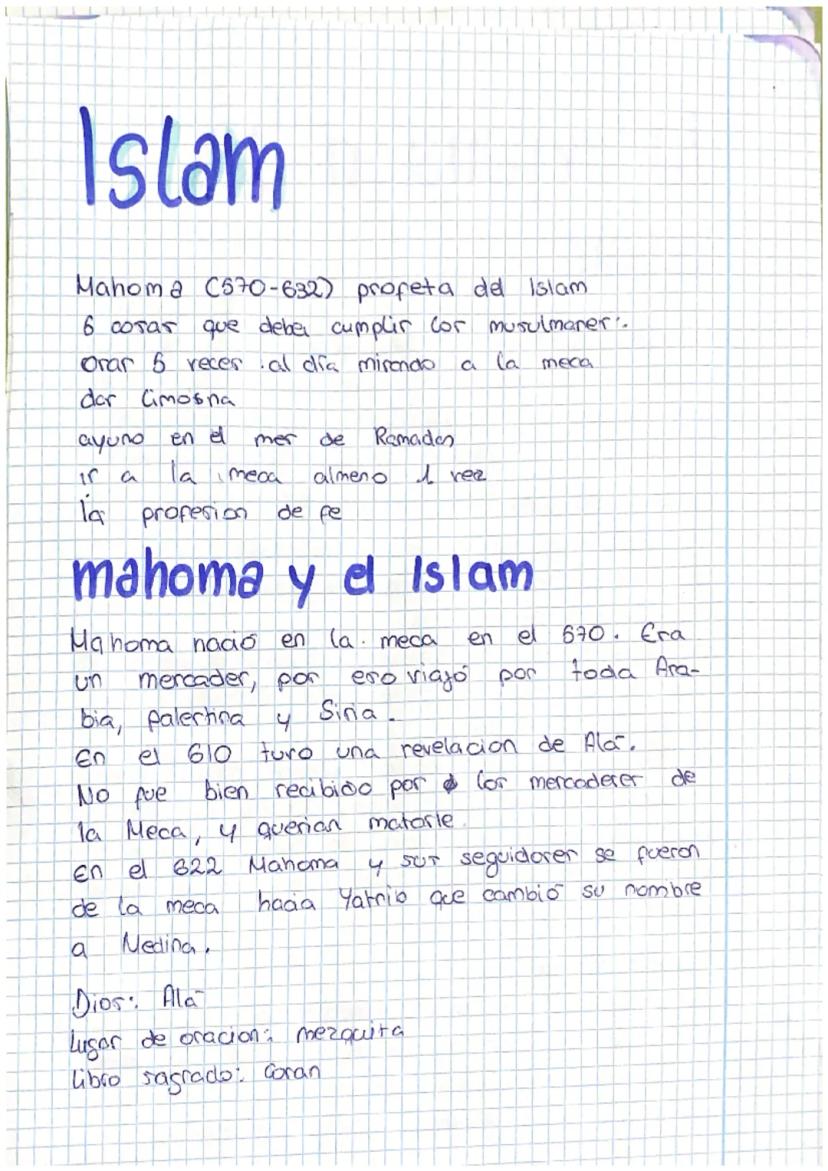 Islam
Mahoma (570-632) profeta del Islam
6 cosas que deben cumplir los musulmanes:
Orar 5 veces al día mirando a la meca
dar limosna
ayuno en el mes de Ramadan
ir a la meca almeno 1 vez
la profesion de fe
mahoma y el Islam
Mahoma nació en la meca en el 570. Era
un mercader, por eso viajó por toda Ara-
bia, palestina y Siria.
En el 610 tuvo una revelacion de Alá.
No fue bien recibido por los mercaderes de
la Meca, y querian matarle.
En el 622 Mahoma y sus seguidores se fueron
de la meca hacia Yatrib que cambió su nombre
a Medina.
Dios: Alá
Lugar de oracion: mezquita
libro sagrado: Coran